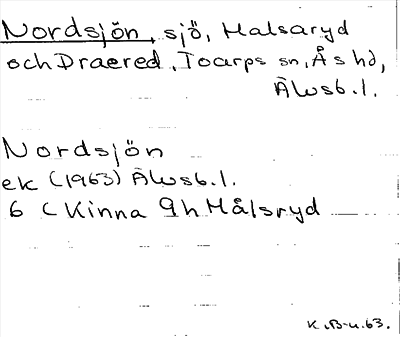 Nordsjön, sjö, Malsaryd
och Draered, Toarps sn, Ås hd,
Älvsb. l.
Nordsjön
ek (1963) Älvsb. l.
6 C Kinna 9h Målsryd
K.B-u.63.